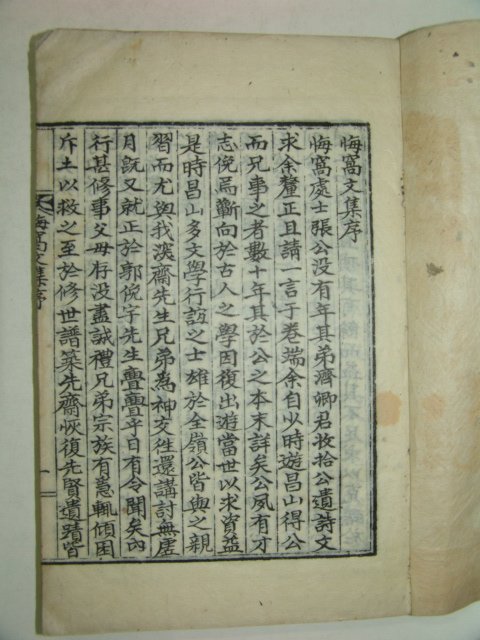 悔窩文集序
悔窩處士張公没有年其弟濟卿君收拾公遺詩文
求余釐正且請一言于卷端余自少時遊昌山得公
而兄事之者數十年其於公之本末詳矣公夙有才
志俛焉嚮向於古人之學因復出遊當世以求資益
是時昌山多文學行誼之士雄於全嶺公皆與之親
習而尤與我深齋先生兄弟為神交徃還講討無虛
月旣又就正於郭俛宇先生亹亹乎日有令聞矣内
行甚修事父母存没盡誠禮兄弟宗族有急輒傾困
斥土以救之至於修世譜築先齋恢復先賢遺蹟皆
悔窩文集序
一